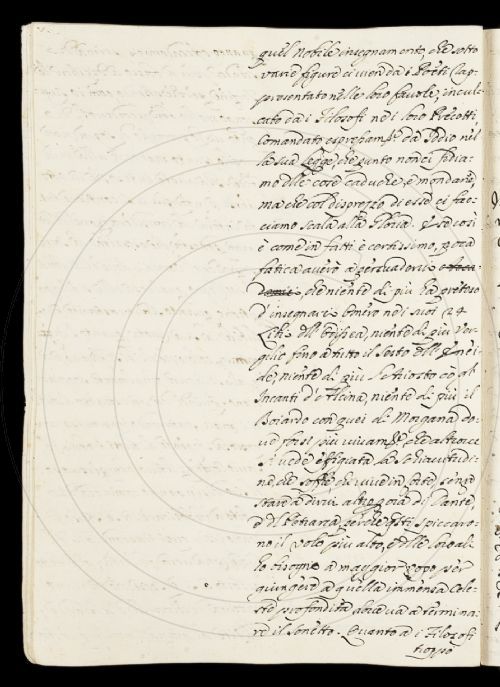 quel nobile insegnamento, che sotto
varie figure ci vien da i Poeti rap-
presentato nelle loro favole, incul-
cato da i Filosofi ne i loro Precetti,
Comandato espressam.te da Iddio nel
la sua Legge, che punto non ci fidia-
mo delle cose caduche, e mondane,
ma che col disprezzo di esse ci fac-
ciamo scala alla Gloria. E se così
è come in fatti è certissimo, poca
fatica averò a persuadervi o Acca-
demici, che niente di più ha preteso
d'insegnarci Omero ne i suoi 24
Libri dell'Odissea, niente di più Ver-
gilio fino a tutto il Sesto dell'Enei-
de, niente di più l'Ariosto cò gl'
Incanti d'Alcina, niente di più il
Boiardo con quei di Morgana do-
ve forsi più vivam.te, che altrove
si vede effigiata la schiavitudi-
ne che soffre chi vive in senza
stare a dirvi altro poi di Dante,
e del Petrarca, perche q.sti spiccaro-
no il volo più alto, e delle loro ali
fo bisogno a maggior uopo per
giungere a quella immensa Cele-
ste profondità dove va a termina-
re il Sonetto. Quanto a i Filosofi
troppo